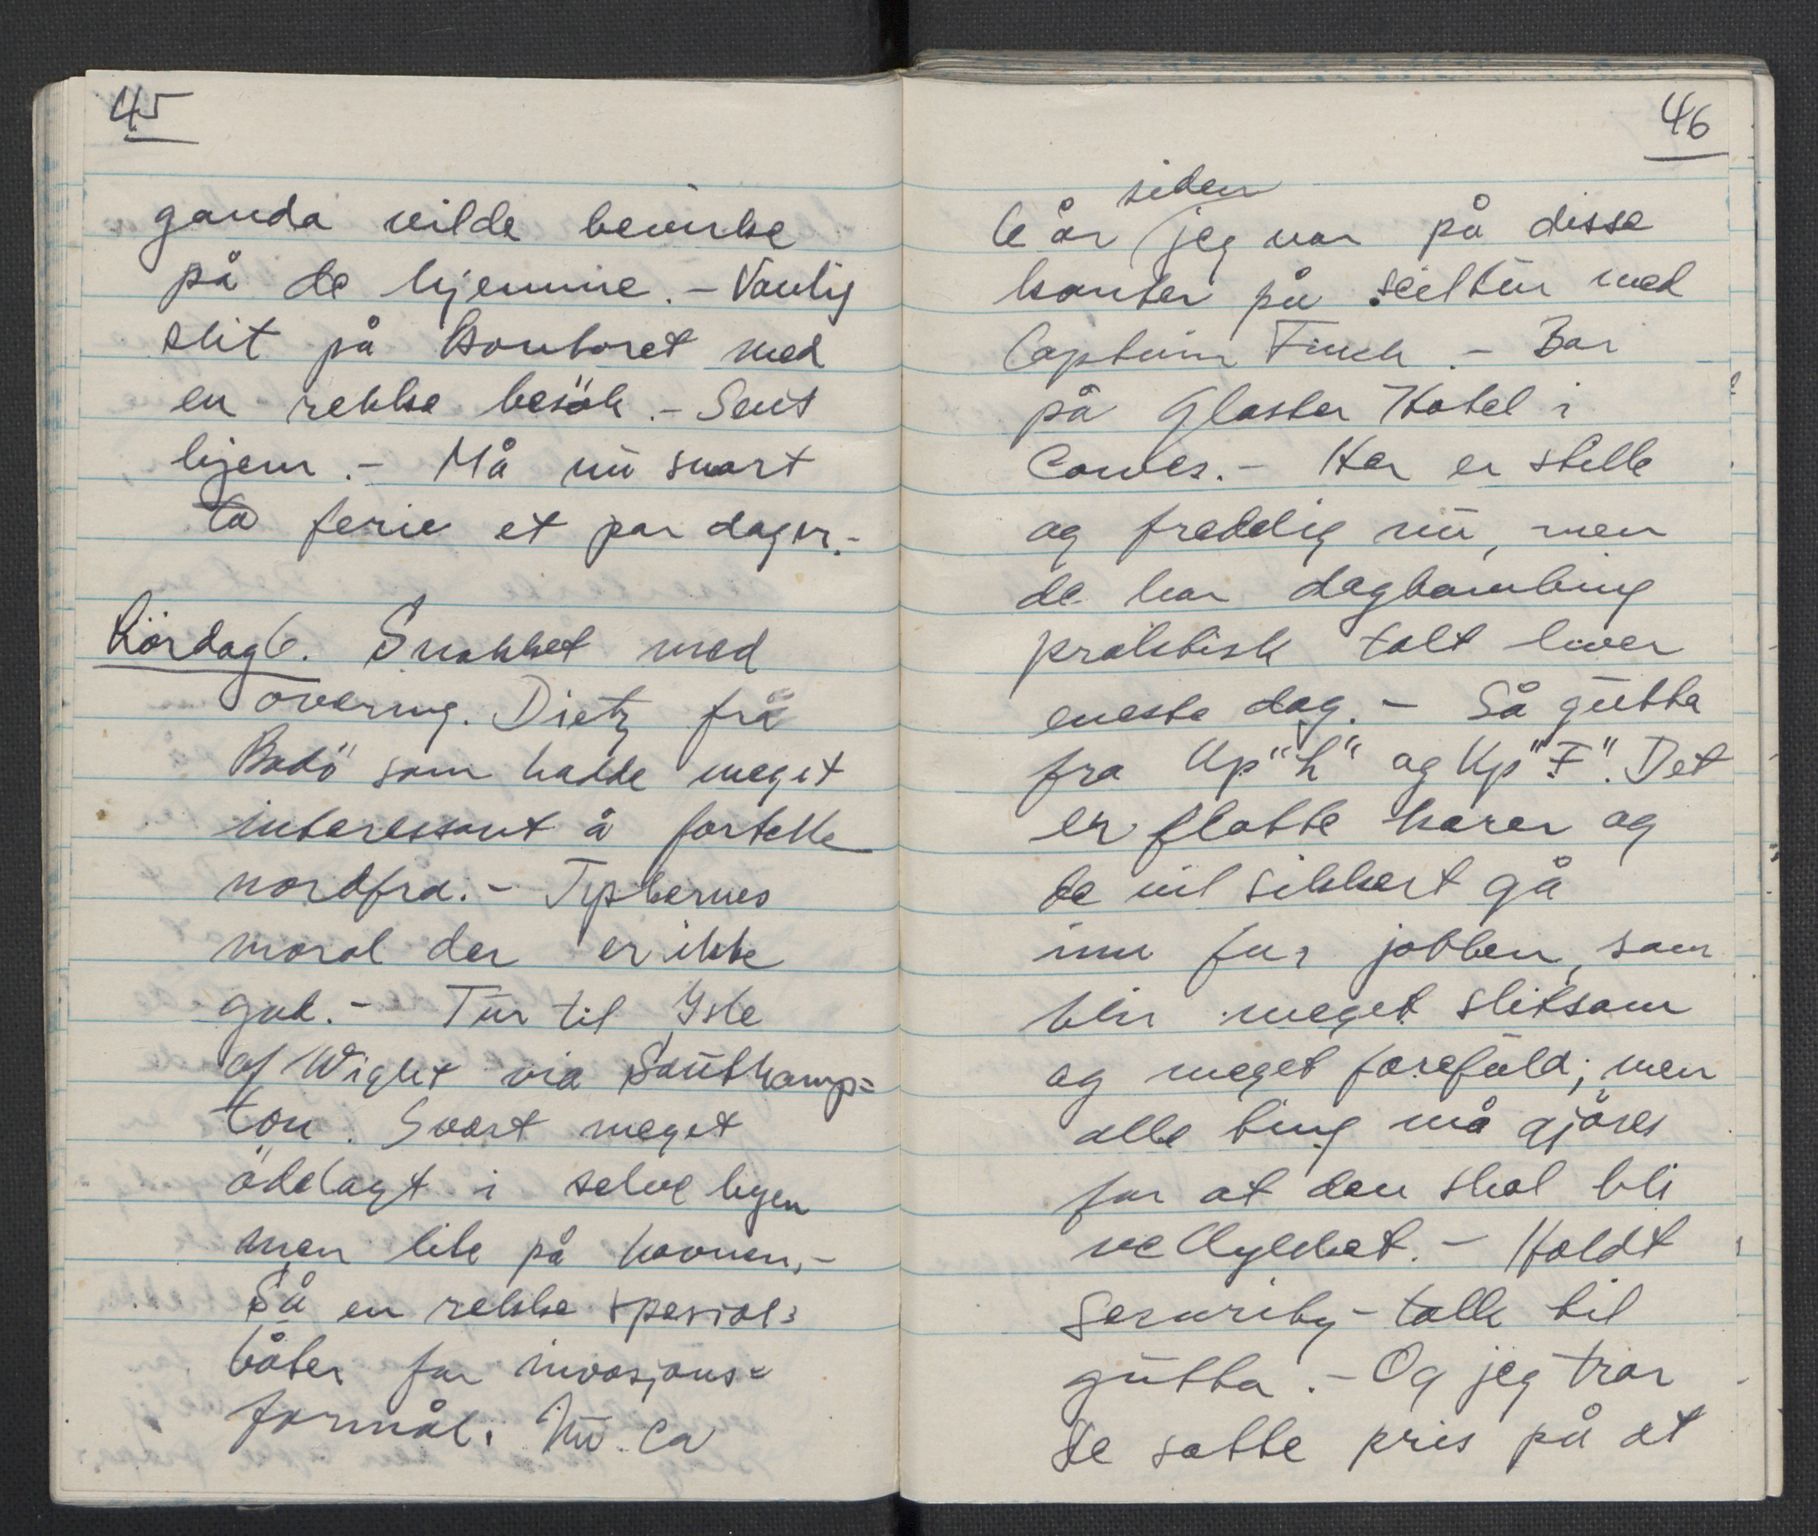 45
ganda vilde bevirke
på de hjemme. - Vanlig
slit på Kontoret med
en rekke besök. - Sent
hjem. - Må nu snart
ta ferie et par dager. -
Lördag 6. Snakket med
overing. Dietz frå
Bodö som hadde meget
interessant å fortelle
nordfra. - Tyskernes
moral der er ikke
god. - Tur til Isle
of Wight via Southamp=
ton. Svært meget
ödelagt i selve byen
men lite på havnen. -
Så en rekke spesial=
båter for invasjons=
formål. Nu ca
46
6 år siden jeg var på disse
kanter på seiltur med
Captain Finch. - Bor
på Gloster Hotel i
Cowes. - Her er stille
og fredelig nu, men
de har dagbombing
praktisk talt hver
eneste dag. - Så gutta
fra Kp "L" og Kp "F". Det
er flotte karer og
de vil sikkert gå
inn for jobben, som
blir meget slitsom
og meget farefuld; men
alle ting må gjöres
for at den skal bli
vellykket. - Holdt
Security-talk til
gutta. - Og jeg tror
de satte pris på at